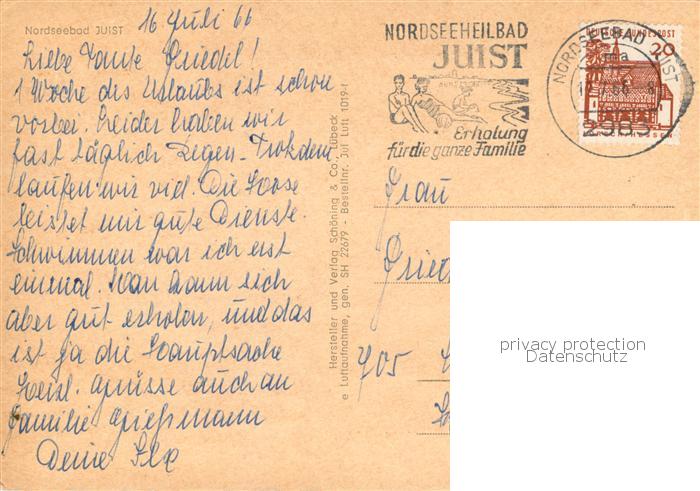 Nordseebad JUIST
16 Juli 66
Liebe Tante Friedel!
1 Woche des Urlaubs ist schon
vorbei. Leider haben wir
fast täglich Regen. Trotzdem
laufen wir viel. Die Hose
leistet mir gute Dienste.
Schwimmen war ich erst
einmal. Man kann sich
aber gut erholen, und das
ist ja die Hauptsache
Herzl. Grüsse auch an
Familie
Deine Ilse
Hersteller und Verlag Schöning & Co., Lübeck
e Luftaufnahme, gen. SH 22679 - Bestellnr. Jui Luft 1019-f
NORDSEEHEILBAD
JUIST
Erholung
für die ganze Familie
NORDSEEBAD JUIST
2983
DEUTSCHE BUNDESPOST
20
Frau
Fried
705
privacy protection
Datenschutz